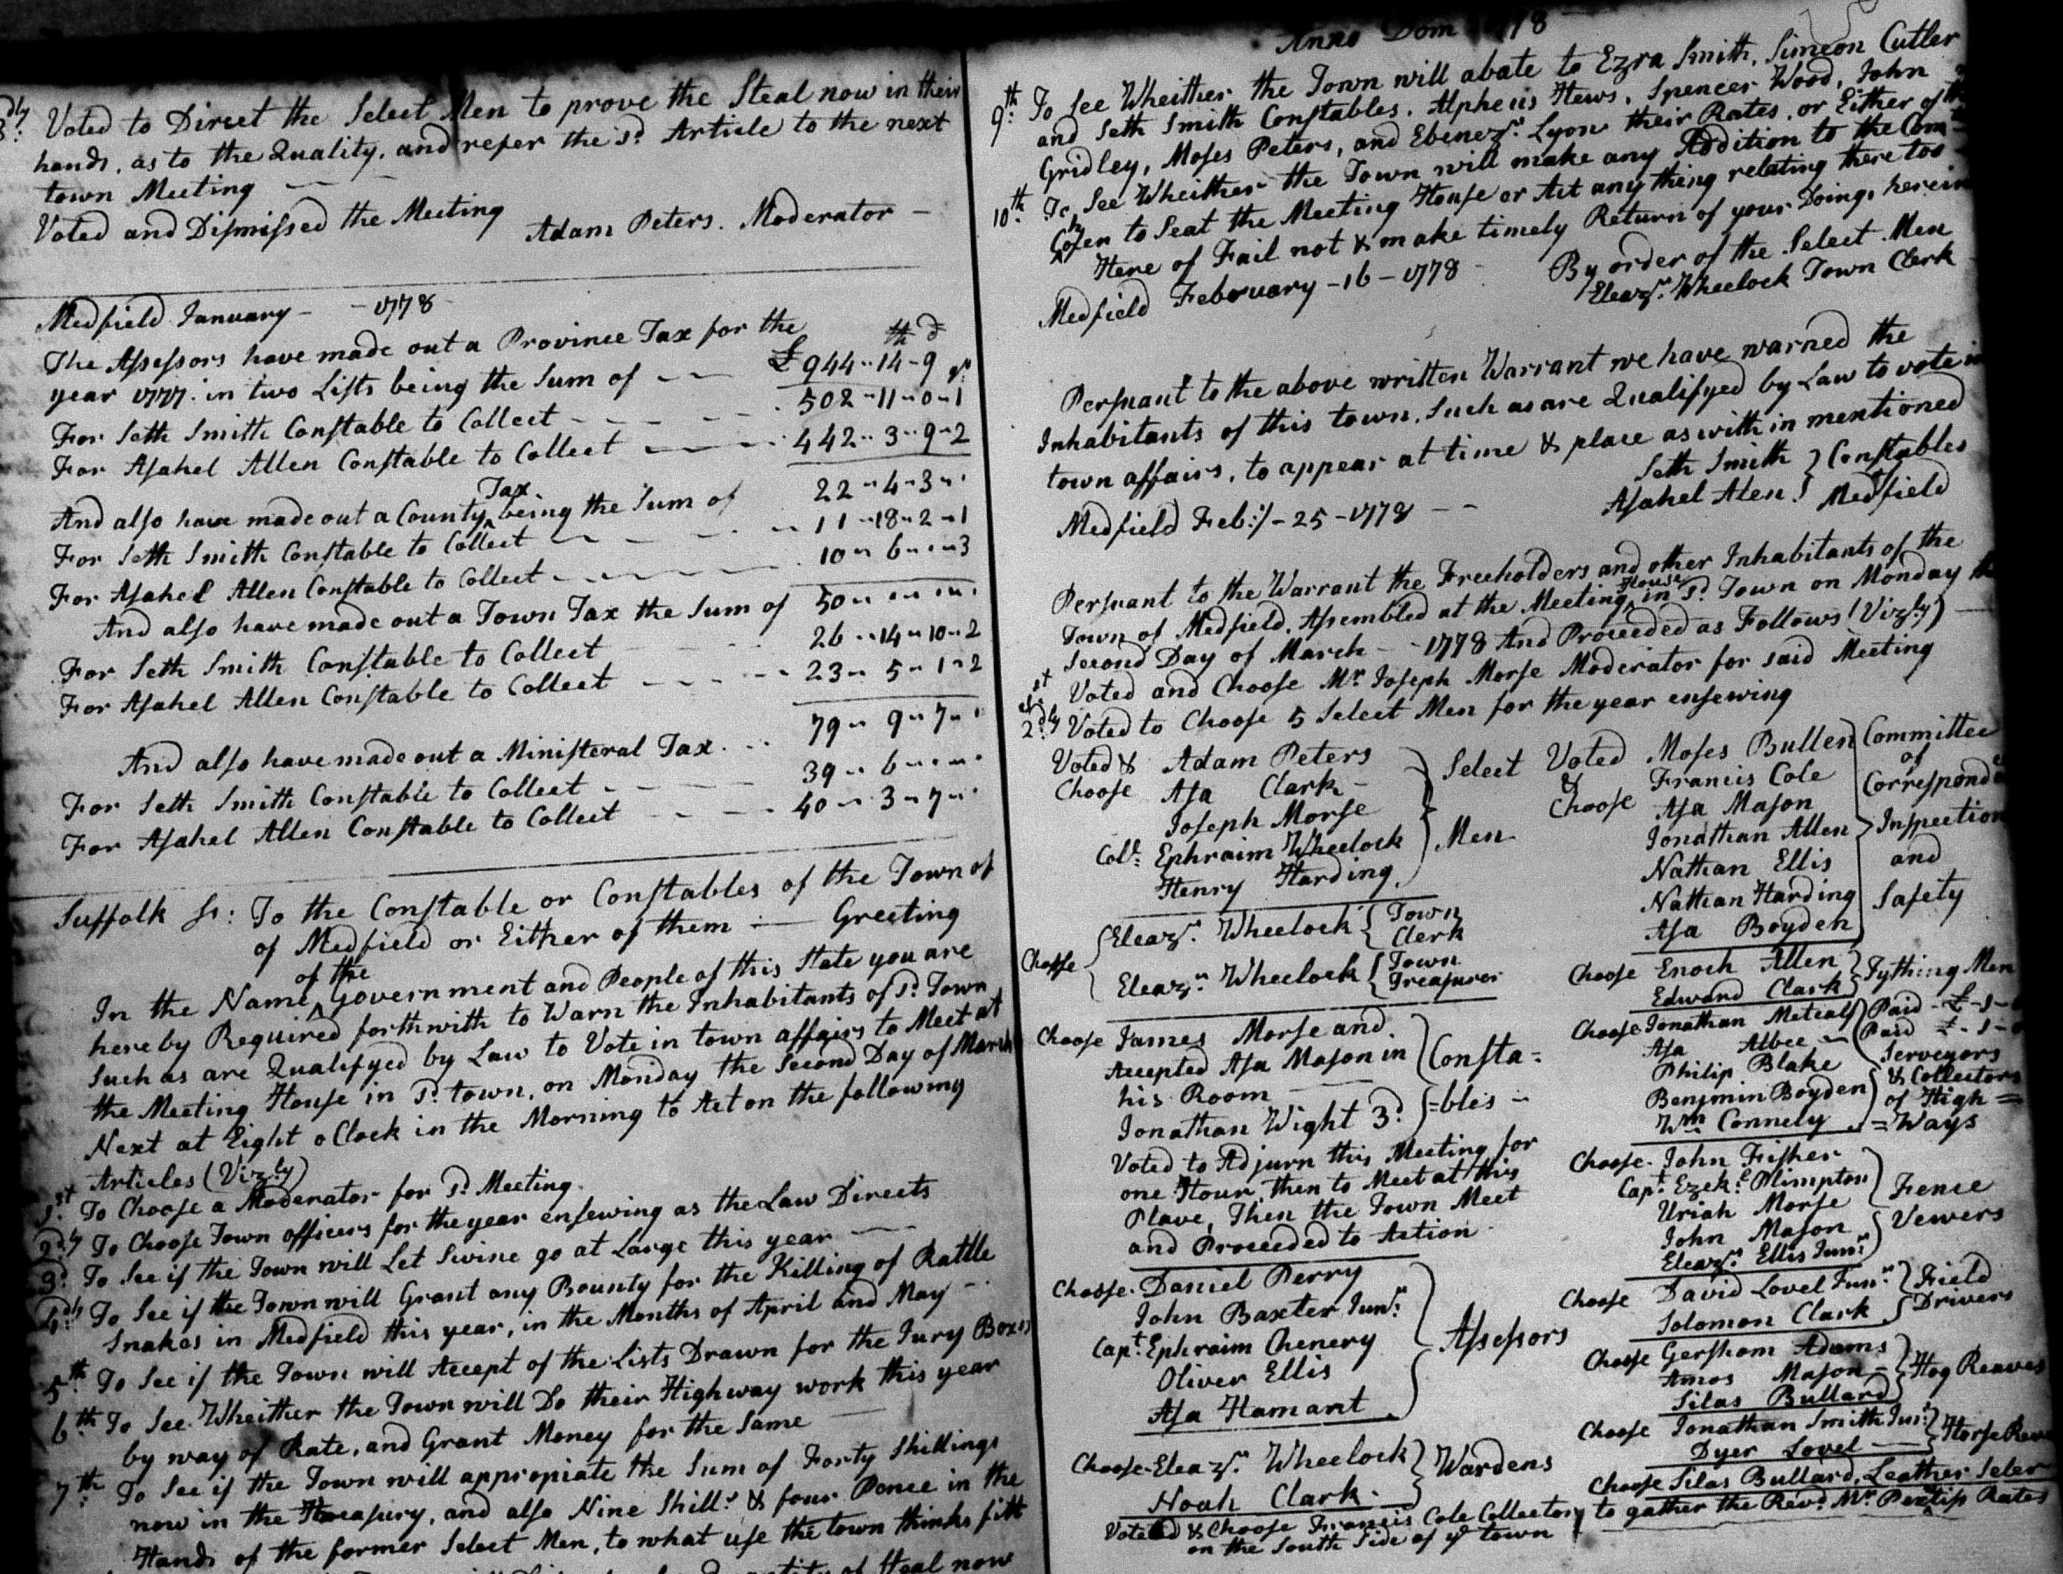 3dly Voted to Direct the Select Men to prove the Steal now in their
hands, as to the Quality, and refer the sd. Article to the next
town Meeting
Voted and Dismissed the Meeting
Adam Peters. Moderator
Medfield January - 1778
The Assessors have made out a Province Tax for the
year 1777. in two Lists being the Sum of £944-14-9
For Seth Smith Constable to Collect 502-11-0-1
For Asahel Allen Constable to Collect 442-3-9-2
And also have made out a County Tax being the Sum of 22-4-3-
For Seth Smith Constable to Collect 11-18-2-1
For Asahel Allen Constable to Collect 10-6-"-3
And also have made out a Town Tax the Sum of 50-"-"-"
For Seth Smith Constable to Collect 26-14-10-2
For Asahel Allen Constable to Collect 23-5-1-2
And also have made out a Ministeral Tax 79-9-7-"
For Seth Smith Constable to Collect 39-6-"-"
For Asahel Allen Constable to Collect 40-3-7-"
Suffolk Ss: To the Constable or Constables of the Town of
of Medfield or Either of them - Greeting
In the Name of the Government and People of this State you are
hereby Required forthwith to Warn the Inhabitants of sd. Town
Such as are Qualifyed by Law to Vote in town affairs to Meet at
the Meeting House in sd. town, on Monday the Second Day of March
Next at Eight o Clock in the Morning to Act on the following
Articles (Vizly)
1st. To Choose a Moderator for sd. Meeting.
2dly To Choose Town officers for the year ensewing as the Law Directs
3d. To See if the Town will Let Swine go at Large this year
4th. To See if the Town will Grant any Bounty for the Killing of Rattle
Snakes in Medfield this year, in the Months of April and May
5th. To See if the Town will Accept of the Lists Drawn for the Jury Boxes
6th. To See Wheither the Town will Do their Highway work this year
by way of Rate, and Grant Money for the Same
7th. To See if the Town will appropiate the Sum of Forty Shillings
now in the Treasury, and also Nine Shills. & four Pence in the
Hands of the former Select Men, to what use the town thinks fitt
of Steal now
Anno Dom 1778
9th. To See Wheither the Town will abate to Ezra Smith, Simeon Cutler
and Seth Smith Constables, Alpheus Hews, Spencer Wood, John
Gridley, Moses Peters, and Ebenezr. Lyon their Rates, or Either of
10th. To See Wheither the Town will make any Addition to the Com
Chosen to Seat the Meeting House or Act any thing relating there too
Here of Fail not & make timely Return of your Doings herein
Medfield February - 16 - 1778 By order of the Select Men
Eleazr. Wheelock Town Clerk
Persuant to the above written Warrant we have warned the
Inhabitants of this town, Such as are Qualifyed by Law to vote in
town affairs, to appear at time & place as with in mentioned
Seth Smith } Constables
Medfield Feb:y - 25 - 1778 Asahel Alen } Medfield
Persuant to the Warrant the Freeholders and other Inhabitants of the
Town of Medfield, Assembled at the Meeting House in sd. Town on Monday the
Second Day of March - 1778 And Proceeded as Follows (Vizly)
1st Voted and Choose Mr. Joseph Morse Moderator for said Meeting
2dly Voted to Choose 5 Select Men for the year ensewing
Voted & Choose Adam Peters
Asa Clark
Joseph Morse
Colo. Ephraim Wheelock
Henry Harding
Select Men
Choose Eleazr. Wheelock { Town Clerk
Eleazr. Wheelock { Town Treasurer
Choose James Morse and
Accepted Asa Mason in
his Room
Jonathan Wight 3d.
Consta=
=bles
Voted to Adjurn this Meeting for
one Hour, then to Meet at this
Place, Then the Town Meet
and Proceeded to Action
Choose Daniel Perry
John Baxter Junr.
Capt. Ephraim Chenery
Oliver Ellis
Asa Hamant
Assessors
Choose Eleazr. Wheelock
Noah Clark
Wardens
Voted & Choose Francis Cole Collector to gather the Revd. Mr. Rates
on the South Side of ye town
Voted & Choose Moses Bullen
Francis Cole
Asa Mason
Jonathan Allen
Nathan Ellis
Nathan Harding
Asa Boyden
Committee
of
Correspond
Inspection
and
Safety
Choose Enoch Allen
Edward Clark
Tything Men
Choose Jonathan Metcalf (Paid £-1-
Asa Albee (Paid £-1-
Philip Blake
Benjmin Boyden
Wm. Connely
Serveyors
& Collectors
of High=
=Ways
Choose John Fisher
Capt. Ezekl. Plimpton
Uriah Morse
John Mason
Eleazr. Ellis Junr.
Fence
Vewers
Choose David Lovel Junr.
Solomon Clark
Field
Drivers
Choose Gershom Adams
Amos Mason
Silas Bullard
Hog Reaves
Choose Jonathan Smith Junr.
Dyer Lovel
Horse
Choose Silas Bullard, Leather Seler